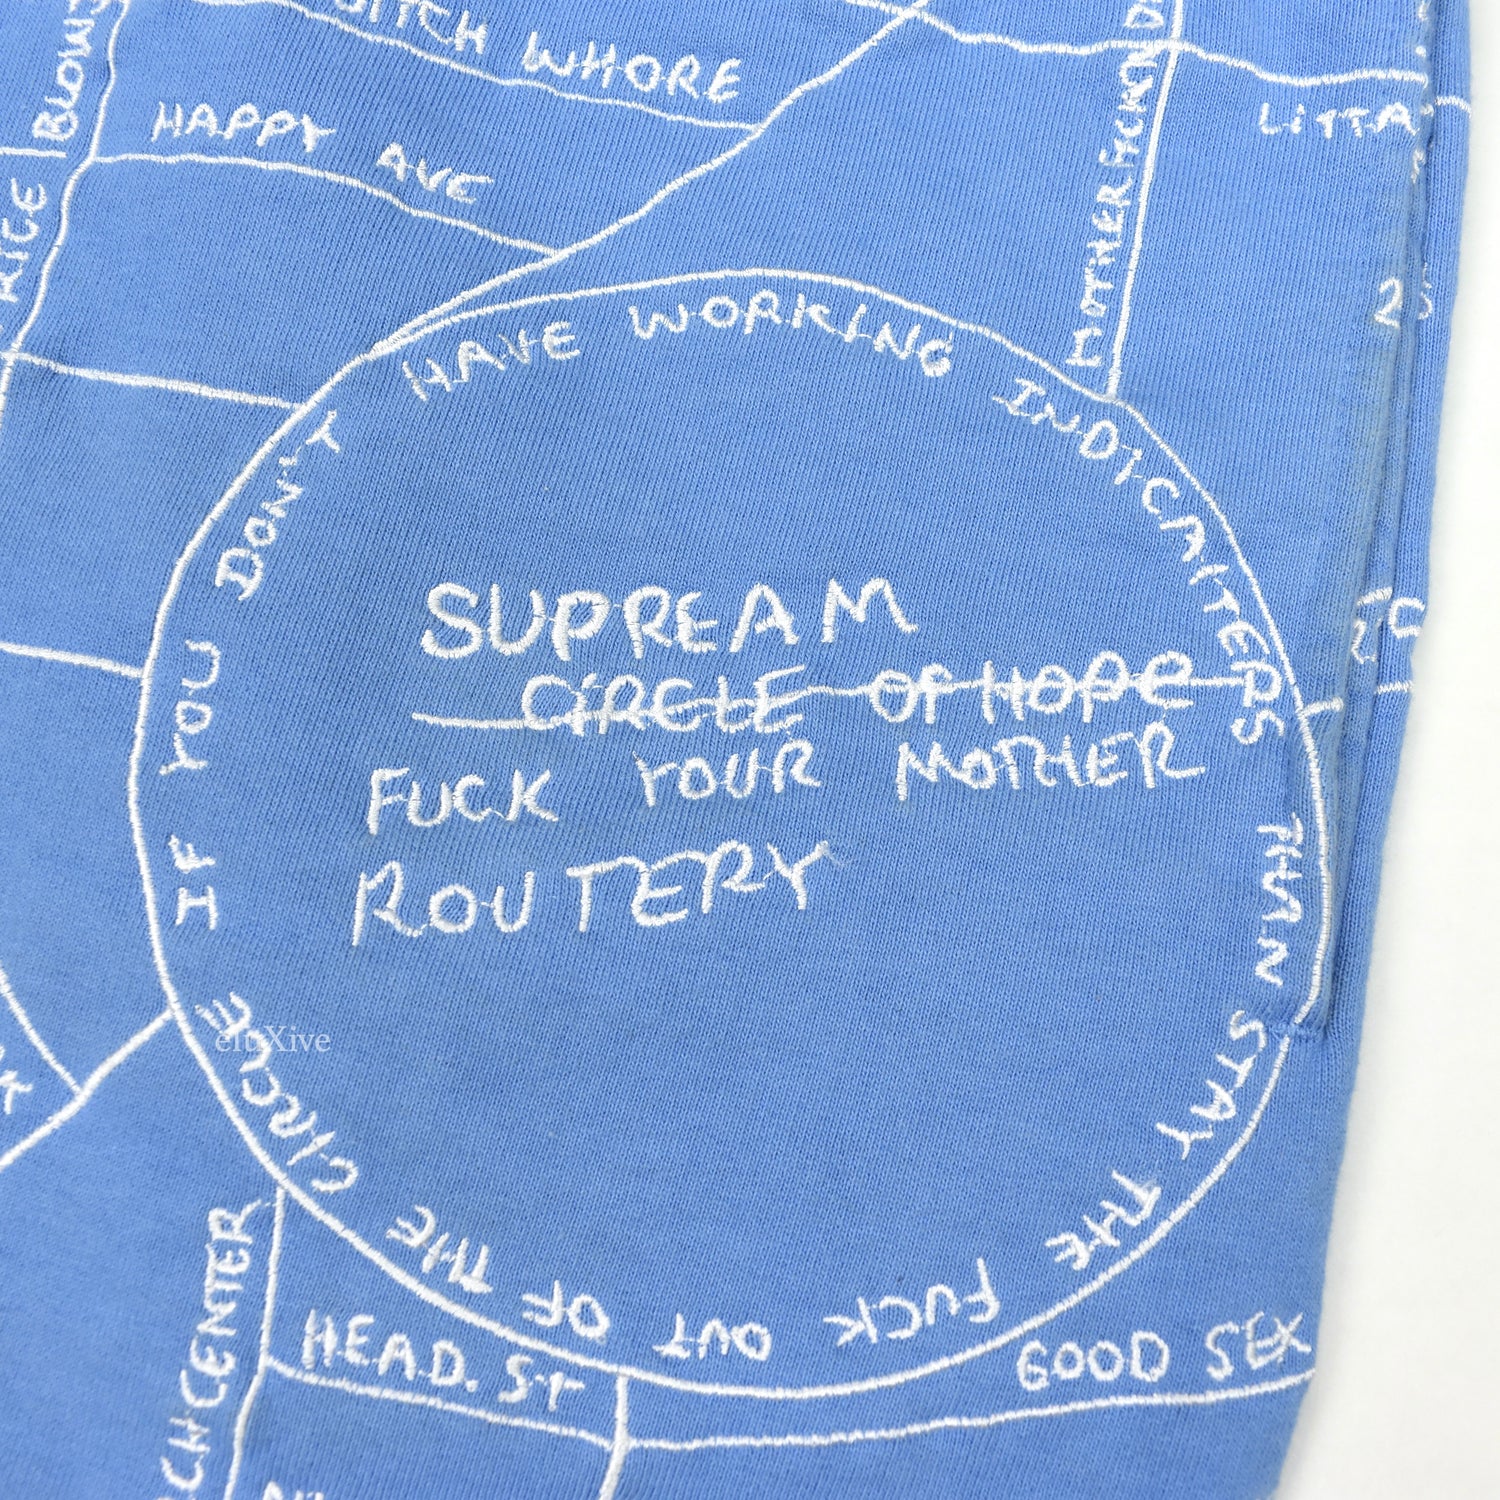 BLOWS
BITCH WHORE
HAPPY AVE
LITTA
IF YOU DON'T HAVE WORKING INDYCAITERS THAN STAY THE FUCK OUT OF THE CIRCLE
SUPREAM
CIRCLE OF HOPE
FUCK YOUR MOTHER
ROUTERY
eluXive
HEAD. ST
GOOD SEX
CENTER